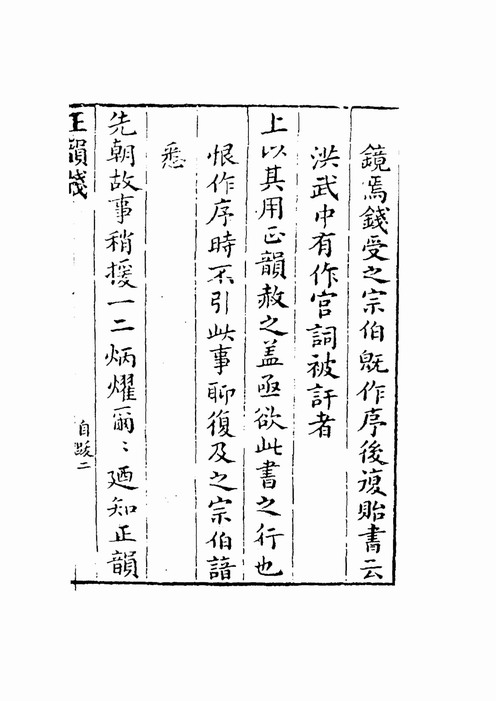 鏡焉錢受之宗伯既作序後復貽書云
洪武中有作官詞被訐者
上以其用正韻赦之盖亟欲此書之行也
恨作序時不引此事聊復及之宗伯諳
悉
先朝故事稍援一二炳燿爾〻廼知正韻
正韻牋
自跋二